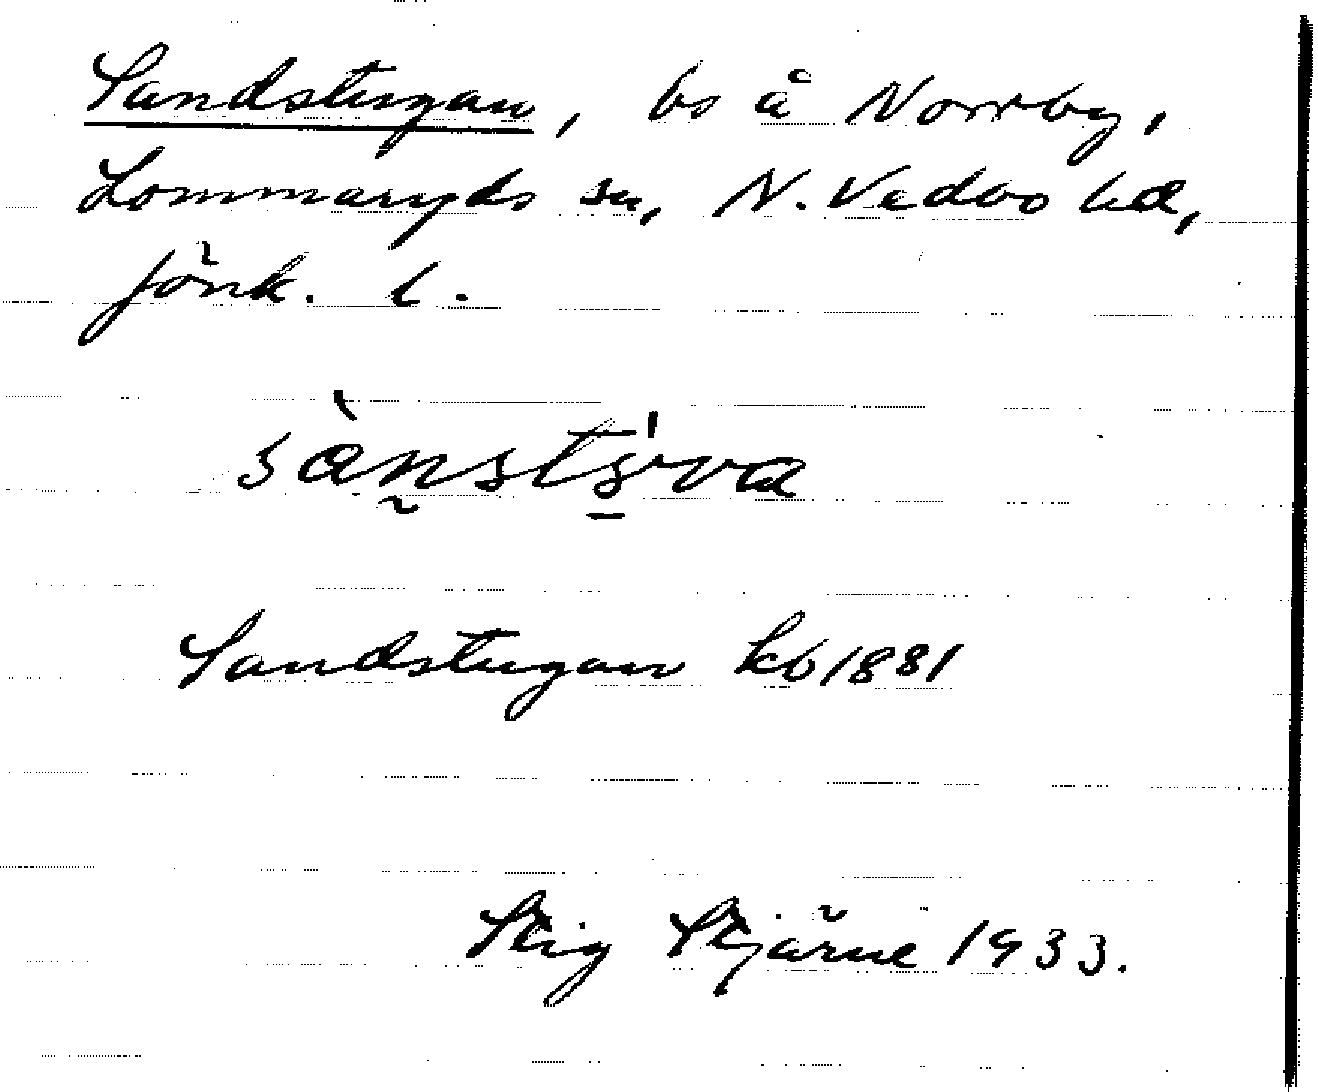 Sandstugan, bs å Norrby,
Lommaryds sn, N. Vedbo hd,
Jönk. l.
Sandstugan kb 1881
Stig Stjärne 1933.